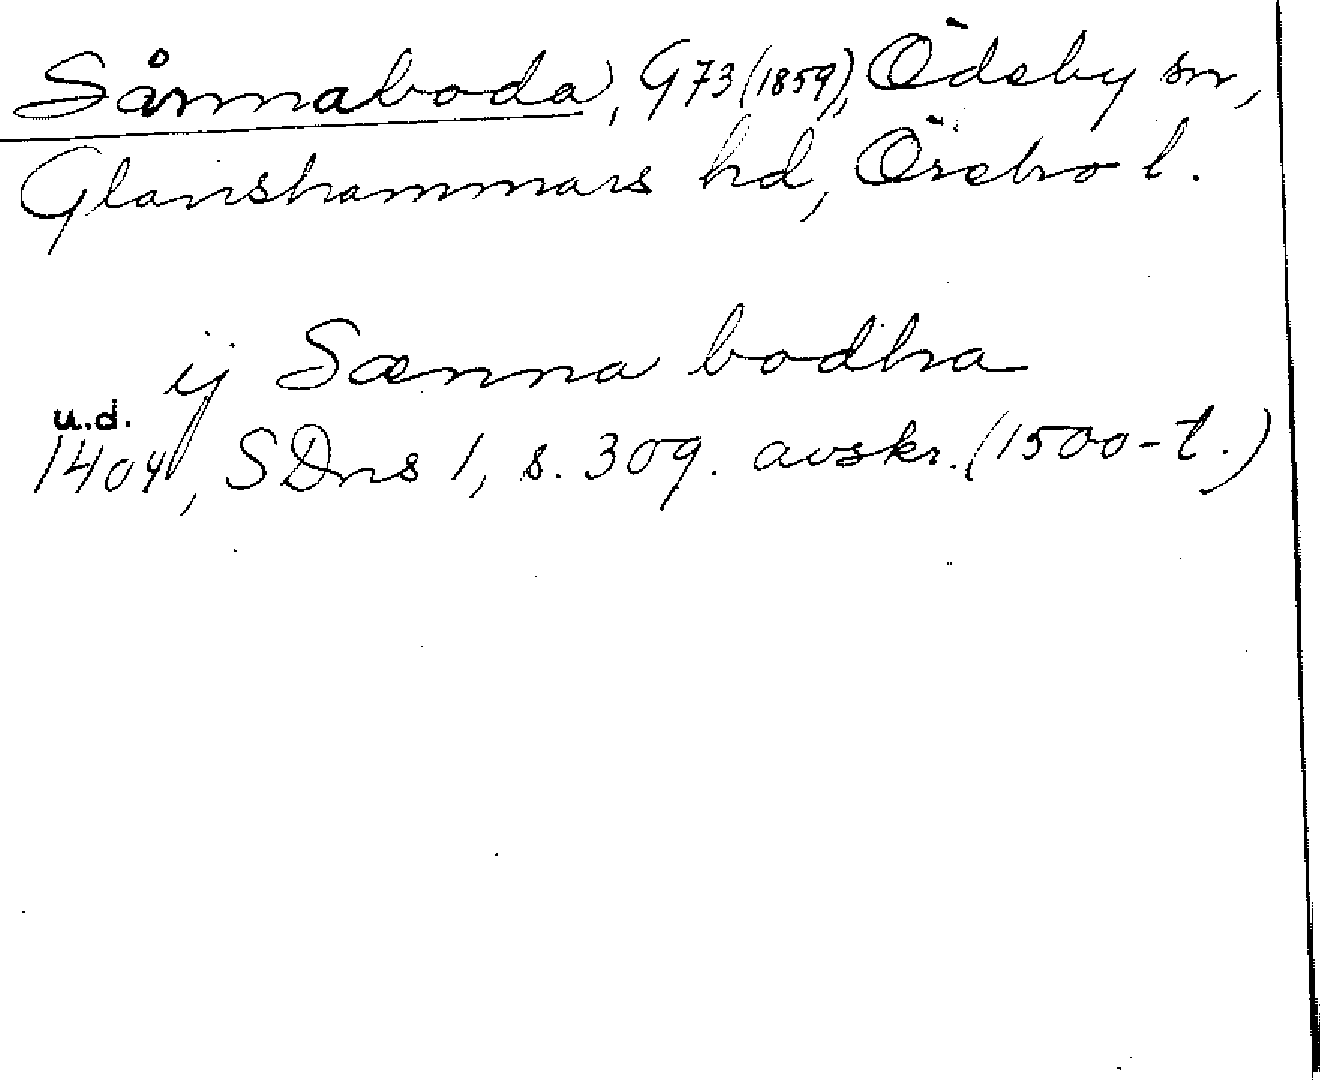 Sånnaboda, G73(1859), Ödeby sn,
Glanshammars hd, Örebro l.
ij Sænna bodha
u.d.
1404, SDns 1, s. 309. avskr. (1500-t.)